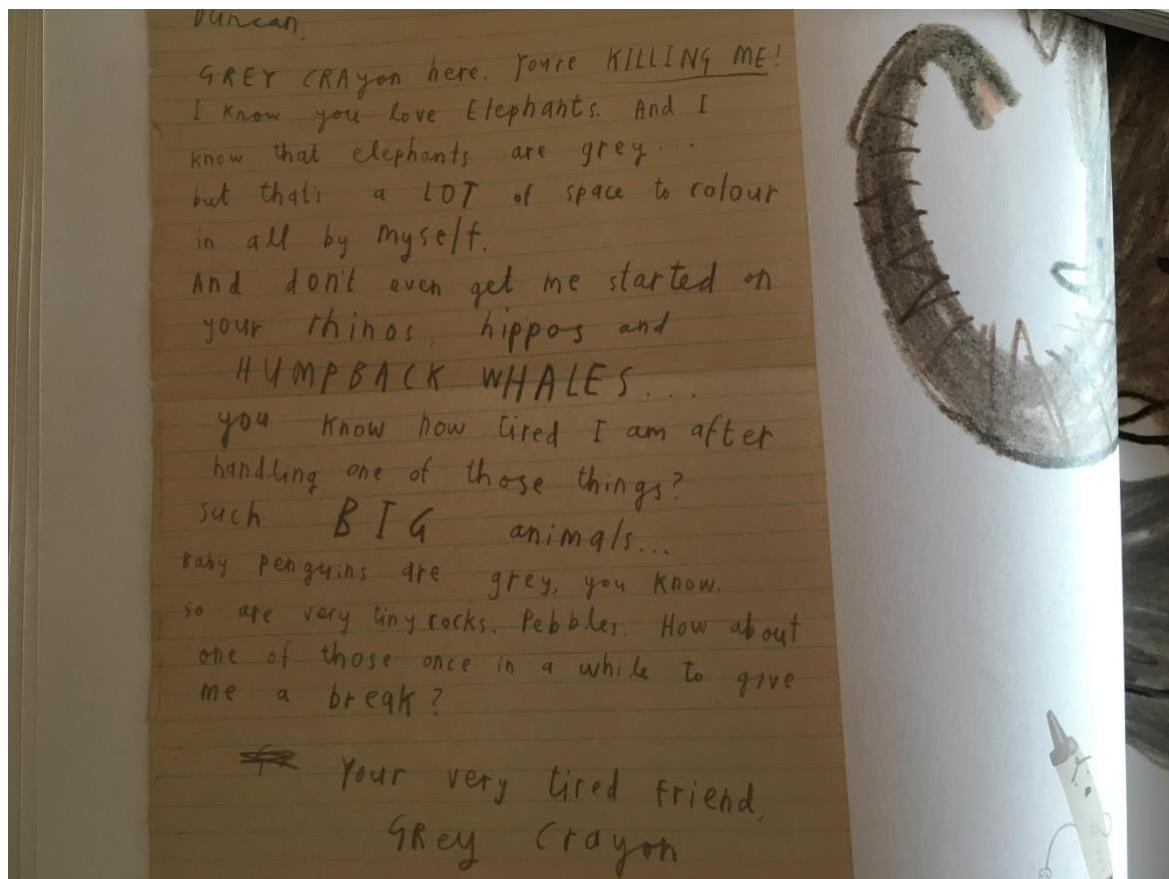 Duncan,
GREY CRAYON here. You're KILLING ME!
I know you love Elephants. And I
know that elephants are grey...
but that's a LOT of space to colour
in all by myself.
And don't even get me started on
your rhinos, hippos and
HUMPBACK WHALES...
you know how tired I am after
handling one of those things?
such BIG animals...
Baby penguins are grey, you know.
so are very tiny rocks. Pebbles. How about
one of those once in a while to give
me a break?
Your very tired friend,
GRey Crayon